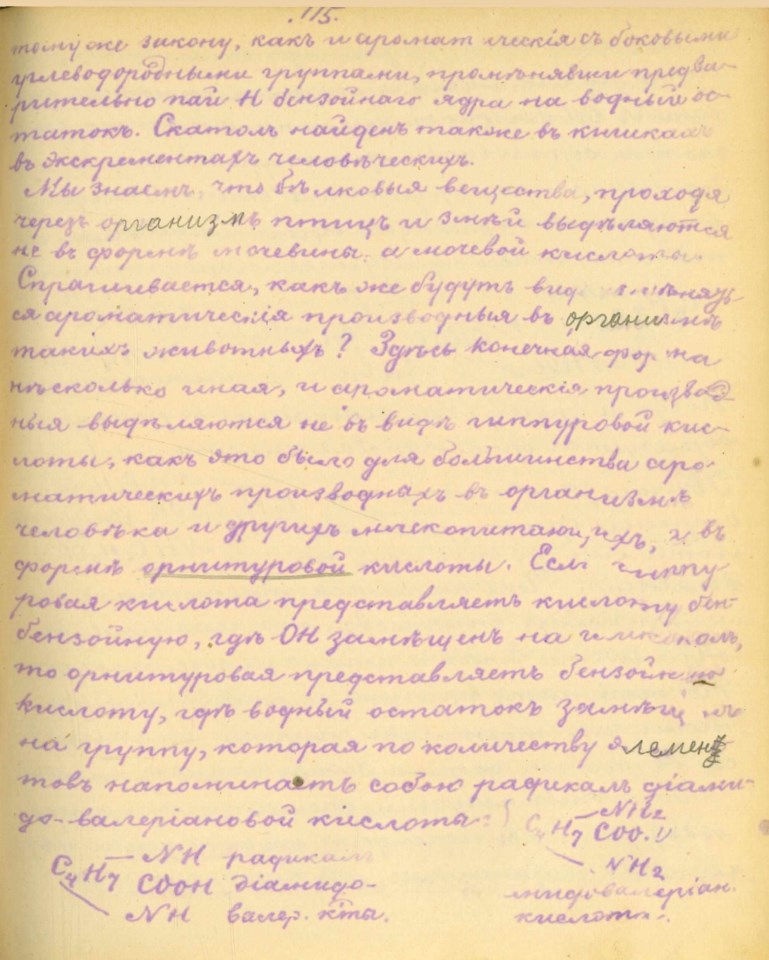 115.
тому же закону, какъ и аромат ическiя съ боковыми
углеводородными группами, промѣнявши предва-
рительно пай Н бензойнаго ядра на водный ос-
татокъ. Скатолъ найденъ также въ кишкахъ
въ экскрементахъ человѣческихъ.
Мы знаемъ, что бѣлковыя вещества, проходя
черезъ организмъ птицъ и змѣй выдѣляются
не въ формѣ мочевины, а мочевой кислоты.
Спрашивается, какъ же будутъ
ся ароматическiя производныя въ организмѣ
такихъ животныхъ? Здѣсь конечная форма
нѣсколько иная, и ароматическiя производ
ныя выдѣляются не въ видѣ гиппуровой кис-
лоты, какъ это было для большинства аро-
матическихъ производныхъ въ организмѣ
человѣка и другихъ млекопитающихъ, а въ
формѣ орнитуровой кислоты. Если гиппу
ровая кислота представляетъ кислоту бен-
бензойную, гдѣ ОН замѣщенъ на гликоколъ,
то орнитуровая представляетъ бензойную
кислоту, гдѣ водный остатокъ замѣщенъ
на группу, которая по количеству элемен
товъ напоминаетъ собою радикалъ дiами-
до-валерiановой кислоты:
C₄H₇ NH₂ COO. NH₂
C₄H₇ NH COOH NH радикалъ дiамидо-валер. к̃та.
мидовалерiан.
кислота.